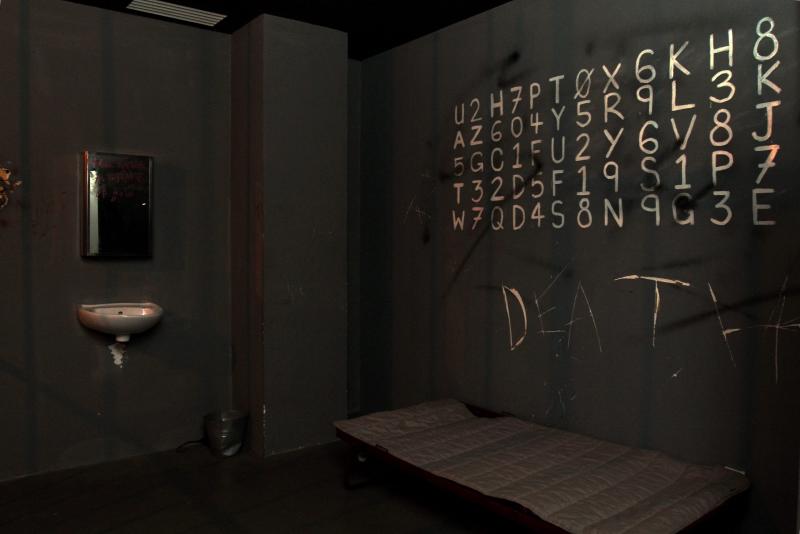 U2H7PTØX6KH8
AZ604Y5R9L3K
5GC1FU2Y6V8J
T32D5F19S1P7
W7QD4S8N9G3E
DEATH